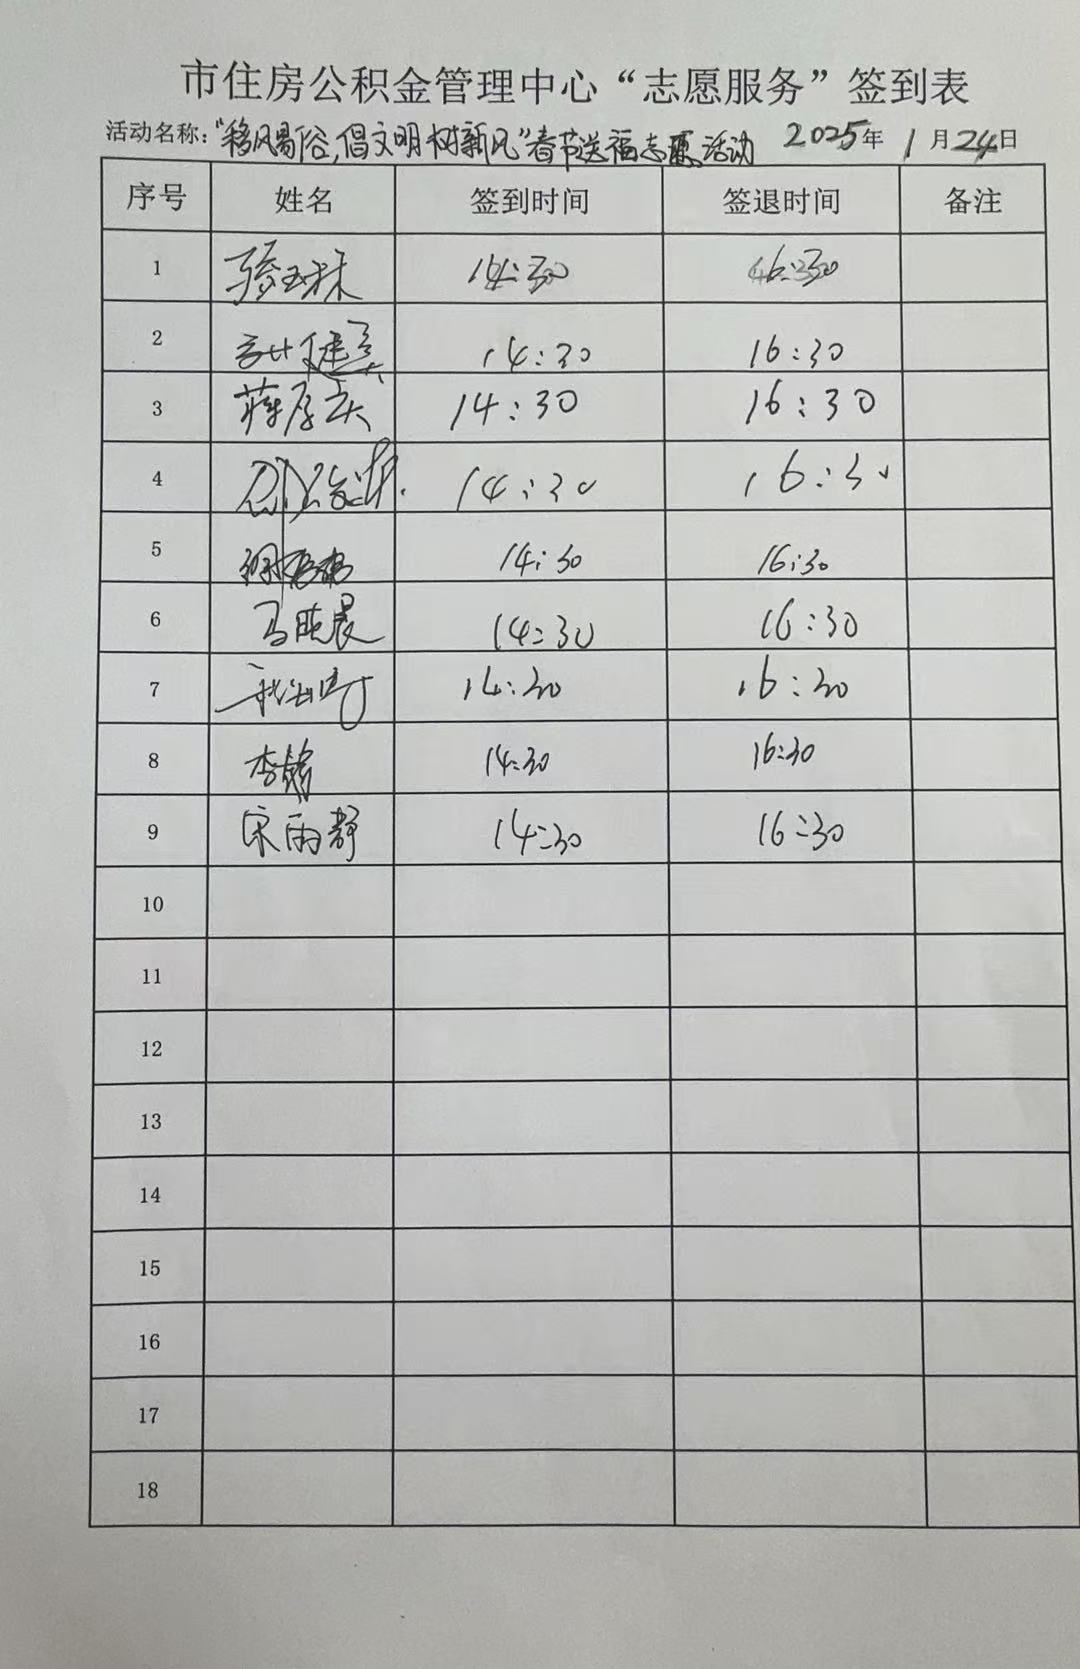 市住房公积金管理中心“志愿服务”签到表
活动名称:“移风易俗,倡文明树新风”春节送福志愿活动 2025年 1月24日
序号 姓名 签到时间 签退时间 备注
1 14:30 16:30
2 14:30 16:30
3 14:30 16:30
4 14:30 16:30
5 14:30 16:30
6 马晓晨 14:30 16:30
7 14:30 16:30
8 李 14:30 16:30
9 宋雨静 14:30 16:30
10
11
12
13
14
15
16
17
18